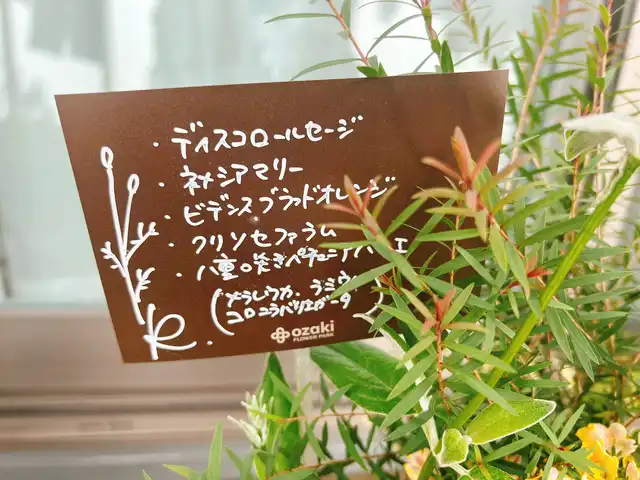 ・ディスコロールセージ
・ネメシアマリー
・ビデンスブラッドオレンジ
・クリソセファラム
・八重咲きペチュニア
(メラレウカ、ラミウ
コロニラバリエガータ)
ozaki
FLOWER PARK